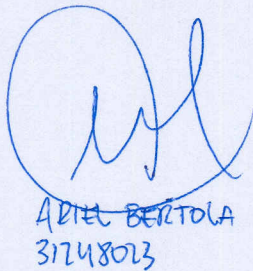 ARIEL BERTOLA
31248023